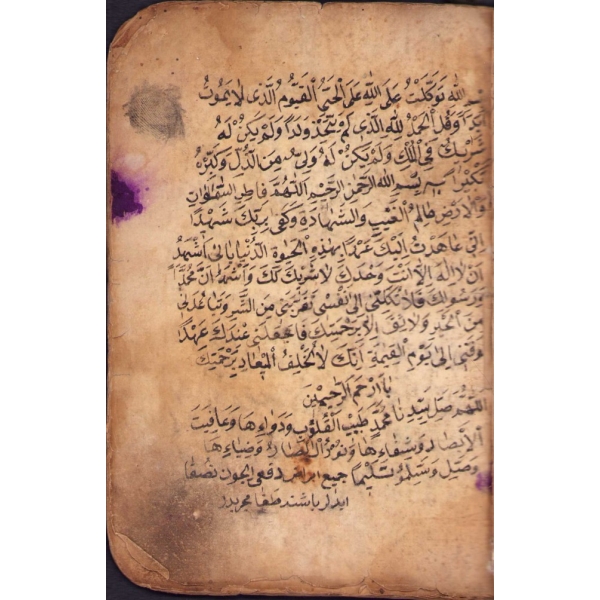 بسم الله توكلت على الله على الحي القيوم الذى لا يموت
ابدا وقل الحمد لله الذى لم يتخذ ولدا ولم يكن له
شريك فى الملك ولم يكن له ولى من الذل وكبره
تكبيرا بسم الله الرحمن الرحيم اللهم فاطر السموات
والارض عالم الغيب والشهادة وكفى بربك شهيدا
انى عاهدت اليك عهدا بهذه الحيوة الدنيا بانى اشهد
ان لا اله الا انت وحدك لا شريك لك واشهد ان محمدا
ورسولك فلا تكلنى الى نفسى تقربنى من الشر وتباعدنى
من الخير ولا يثق الا برحمتك فاجعلنى عندك عهدا
وفنى الى يوم القيمة انك لا تخلف الميعاد برحمتك
يا ارحم الراحمين
اللهم صل سيدنا محمد طبيب القلوب ودواءها وعافيت
الابصار وشفاءها ونور الابصار وضياءها
وصل وسلم تسليما جميع دفعى ايجون
ايدلر باشند مجربدر